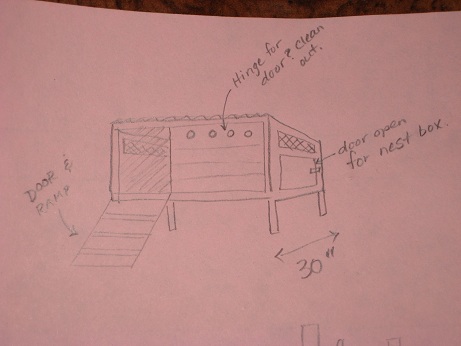 Hinge for
door & clean
out.
door open
for nest box.
DOOR &
RAMP
30"